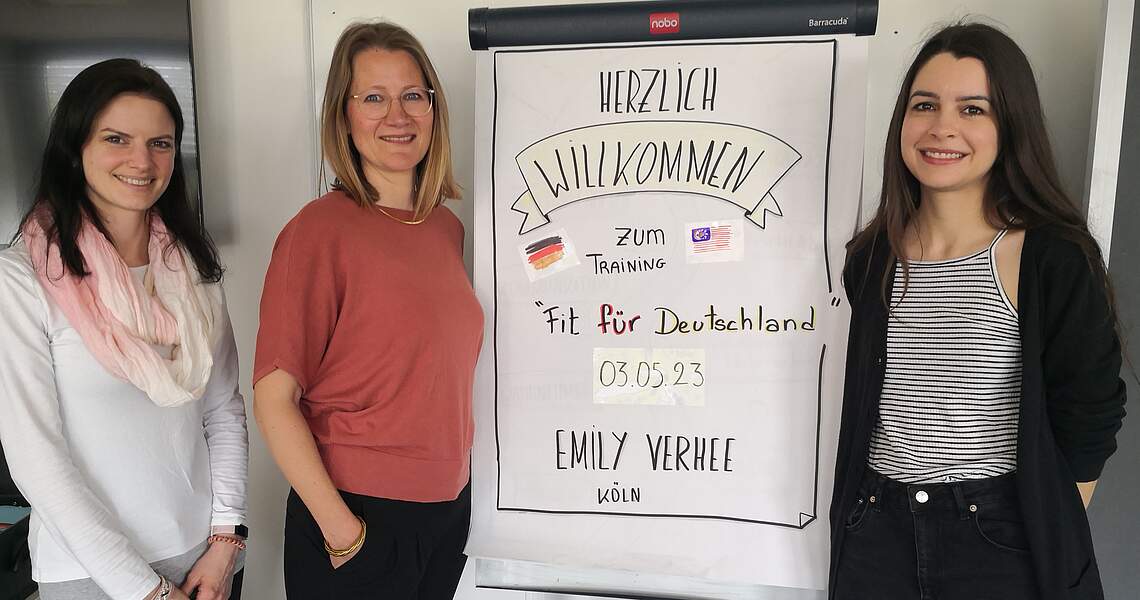 nobo
Barracuda
HERZLICH
WILLKOMMEN
ZUM
TRAINING
"Fit für Deutschland"
03.05.23
EMILY VERHEE
KÖLN